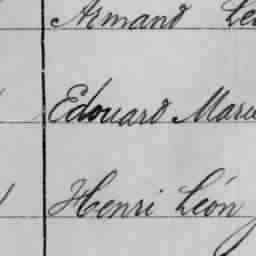 Armand
Edouard
Henri Léon